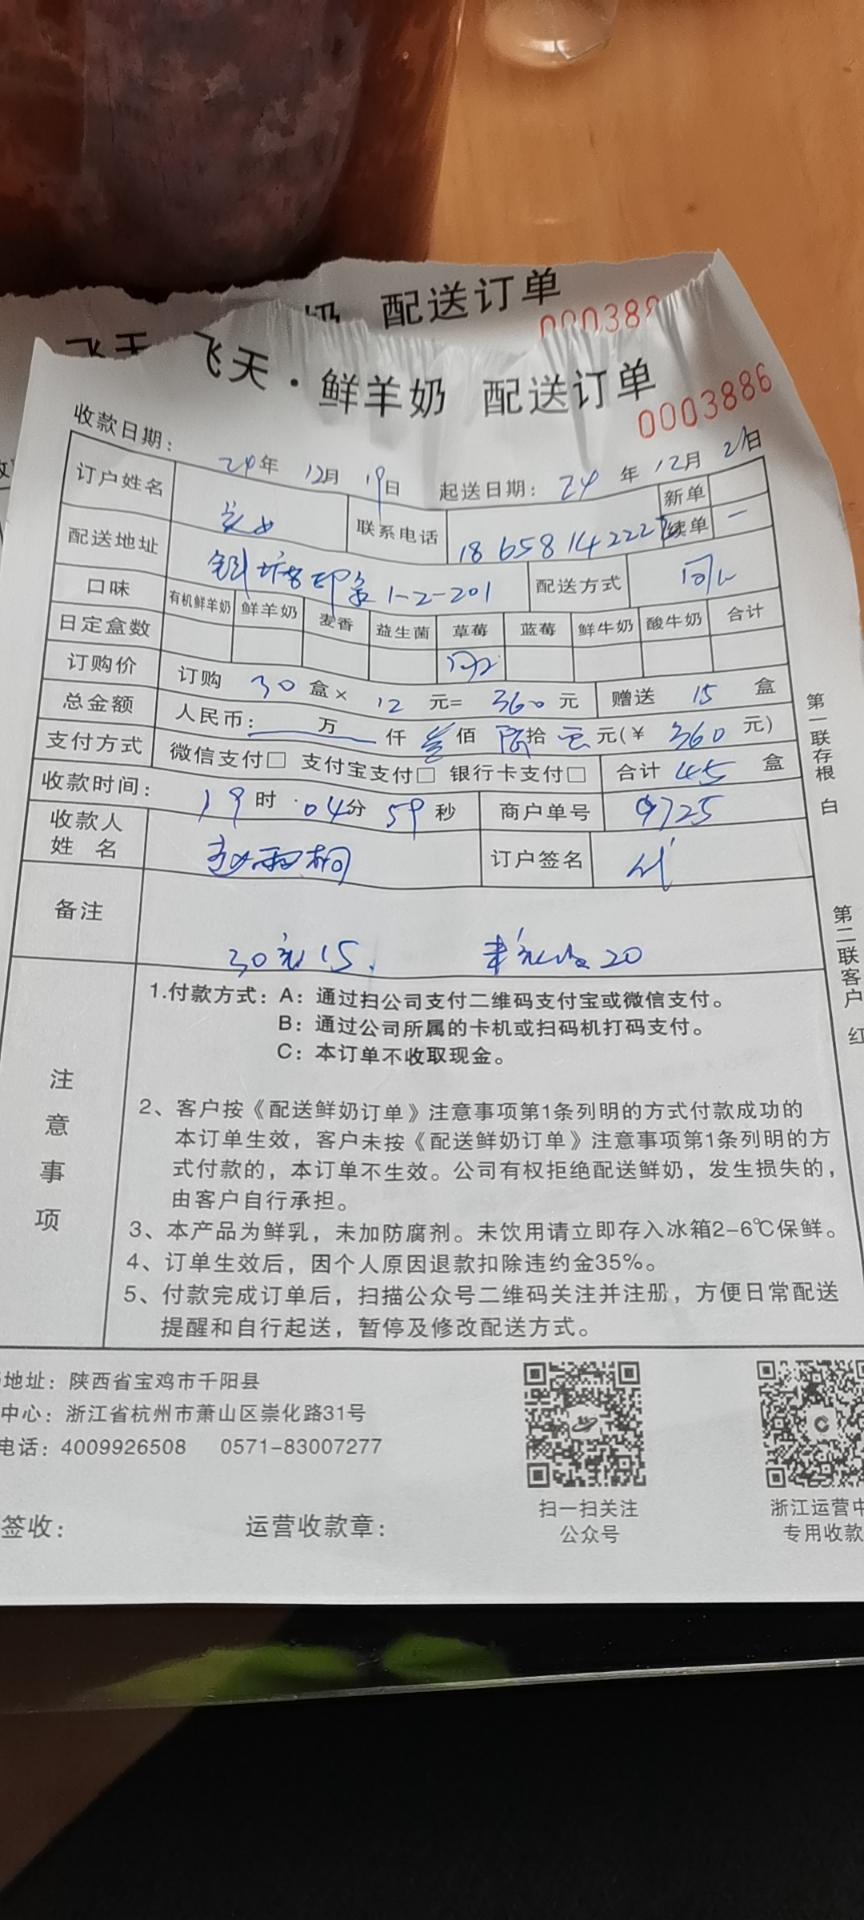 奶 配送订单
飞天
飞天·鲜羊奶 配送订单
0003886
收款日期: 24年 12月 19日 起送日期: 24年 12月 21日
订户姓名 联系电话 18658142227 新单
续单 一
配送地址 印象1-2-201 配送方式
口味 有机鲜羊奶 鲜羊奶 麦香 益生菌 草莓 蓝莓 鲜牛奶 酸牛奶 合计
日定盒数
订购价 订购 30 盒× 12 元= 360 元 赠送 15 盒
总金额 人民币: 万 仟 叁佰 陆拾 元(¥ 360 元)
支付方式 微信支付□ 支付宝支付□ 银行卡支付□ 合计 45 盒
收款时间: 19时 04分 59秒 商户单号 9725
收款人
姓 名 订户签名
备注 30 15. 20
注意事项
1.付款方式: A: 通过扫公司支付二维码支付宝或微信支付。
B: 通过公司所属的卡机或扫码机打码支付。
C: 本订单不收取现金。
2、客户按《配送鲜奶订单》注意事项第1条列明的方式付款成功的
本订单生效，客户未按《配送鲜奶订单》注意事项第1条列明的方
式付款的，本订单不生效。公司有权拒绝配送鲜奶，发生损失的，
由客户自行承担。
3、本产品为鲜乳，未加防腐剂。未饮用请立即存入冰箱2-6℃保鲜。
4、订单生效后，因个人原因退款扣除违约金35%。
5、付款完成订单后，扫描公众号二维码关注并注册，方便日常配送
提醒和自行起送，暂停及修改配送方式。
第一联存根 白
第二联客户 红
地址: 陕西省宝鸡市千阳县
中心: 浙江省杭州市萧山区崇化路31号
电话: 4009926508 0571-83007277
扫一扫关注
公众号
浙江运营中
专用收款
签收:
运营收款章: